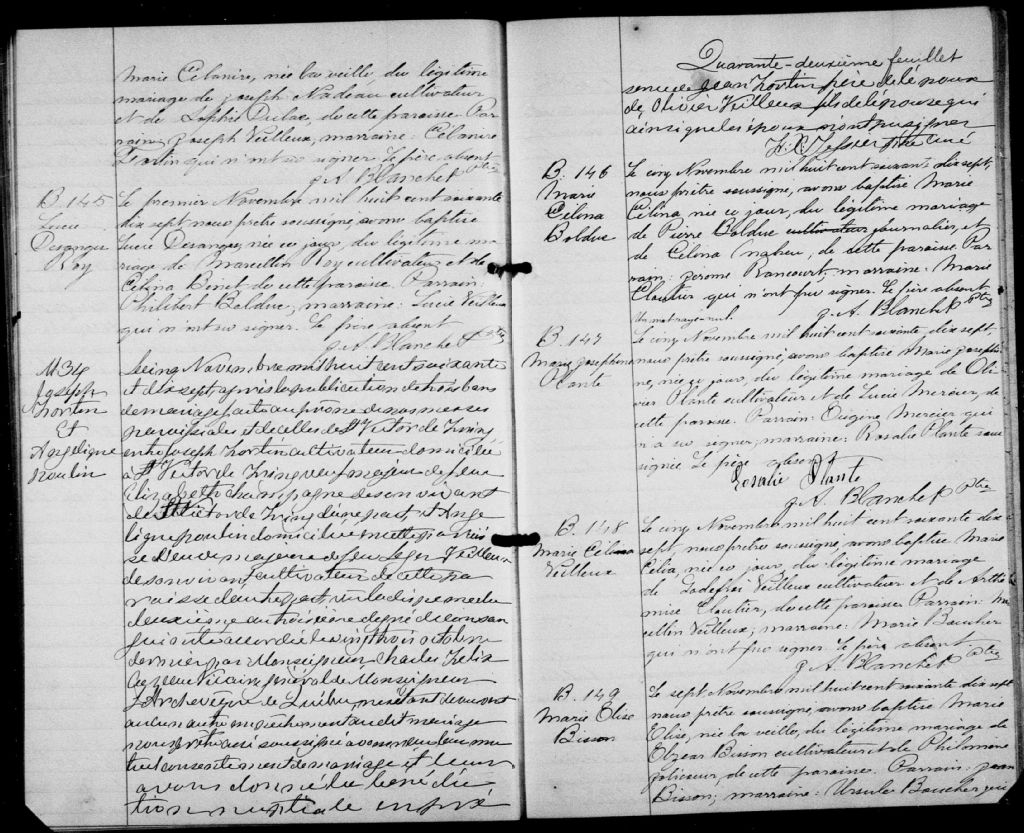 Marie Célanire, née la veille, du légitime
mariage de Joseph Nadeau cultivateur
et de Sophie Dulac, de cette paroisse. Par
rain: Joseph Veilleux, marraine: Célanire
qui n'ont su signer. Le père absent
J. A. Blanchet Ptre
B. 145
Lucie
Desanges
Roy
Le premier Novembre mil huit cent soixante
dix sept, nous prêtre soussigné, avons baptisé
Lucie Desanges, née ce jour, du légitime ma
riage de Marcellin Roy cultivateur et de
Célina Binet de cette paroisse. Parrain:
Philibert Bolduc, marraine: Lucie Veilleux
qui n'ont su signer. Le père absent
J. A. Blanchet Ptre
M 34
Joseph
Fortin
Et
Angelique
Poulin
Le cinq Novembre mil huit cent soixante
et dix sept, après la publication de trois bans
de mariage faite au prône de nos messes
paroissiales et de celles de St Victor de Tring
entre Joseph Fortin cultivateur domicilié
à St Victor de Tring veuf majeur de feue
Elizabeth Champagne de son vivant
de St Victor de Tring d'une part, et Ange
lique Poulin domiciliée en cette parois
se veuve majeure de feu Leger Veilleux
de son vivant cultivateur de cette pa
roisse d'autre part, vu la dispense du
deuxième au troisième degré de consan
guinité accordée le vingt trois octobre
dernier par Monseigneur Charles Félix
Cazeau Vicaire général de Monseigneur
L'Archevêque de Québec, ne s'étant découvert
aucun autre empêchement au dit mariage
nous prêtre curé soussigné avons reçu leur mu
tuel consentement de mariage et leur
avons donné la bénédic
tion nuptiale en pré
Quarante-deuxième feuillet
sence de Jean Fortin père de l'époux
de Olivier Veilleux fils de l'épouse qui
ainsi que les époux n'ont pu signer
Ptre Curé
B. 146
Marie
Célina
Bolduc
Le cinq Novembre mil huit cent soixante dix sept,
nous prêtre soussigné, avons baptisé Marie
Célina, née ce jour, du légitime mariage
de Pierre Bolduc cultivateur journalier, et
de Célina Maheu, de cette paroisse. Par
rain: Jerome Rancourt, marraine: Marie
Cloutier qui n'ont pu signer. Le père absent
Un mot rayé nul. J. A. Blanchet Ptre
B. 147
Marie Josephine
Plante
Le cinq Novembre mil huit cent soixante dix sept,
nous prêtre soussigné, avons baptisé Marie Josephi
ne, née ce jour, du légitime mariage de Oli
vier Plante cultivateur et de Lucie Mercier, de
cette paroisse. Parrain: Onézine Mercier qui
n'a su signer, marraine: Rosalie Plante sous
signée. Le père absent
Rosalie Plante
J. A. Blanchet Ptre
B. 148
Marie Célina
Veilleux
Le cinq Novembre mil huit cent soixante dix
sept, nous prêtre soussigné, avons baptisé Marie
Célia, née ce jour, du légitime mariage
de Godefroi Veilleux cultivateur et de Arthé
mise Cloutier, de cette paroisse. Parrain: Mar
cellin Veilleux; marraine: Marie Boucher
qui n'ont pu signer. Le père absent.
J. A. Blanchet Ptre
B. 149
Marie Elise
Bisson
Le sept Novembre mil huit cent soixante dix sept
nous prêtre soussigné, avons baptisé Marie
Elise, née la veille, du légitime mariage de
Elzéar Bisson cultivateur et de Philomène
Jolicoeur, de cette paroisse. Parrain: Jean
Bisson; marraine: Ursule Boucher qui